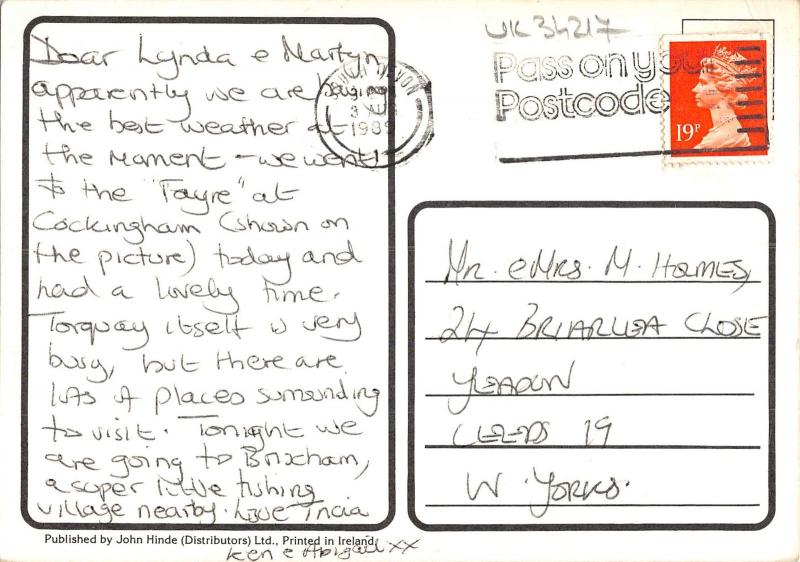 Dear Lynda e Martyn
apparently we are having
the best weather at
the moment - we went
to the "Fayre" at
Cockingham (shown on
the picture) today and
had a lovely time.
Torquay itself is very
busy, but there are
lots of places surrounding
to visit. Tonight we
are going to Brixham,
a super little fishing
village nearby. Love Tricia
Ken e Abigail xx
Published by John Hinde (Distributors) Ltd., Printed in Ireland
UK 34217
Pass on your
Postcode
DEVON
1989
19P
Mr. e Mrs. M. Holmes,
24 BRIARLEA CLOSE
YEADON
LEEDS 19
W. YORKS.